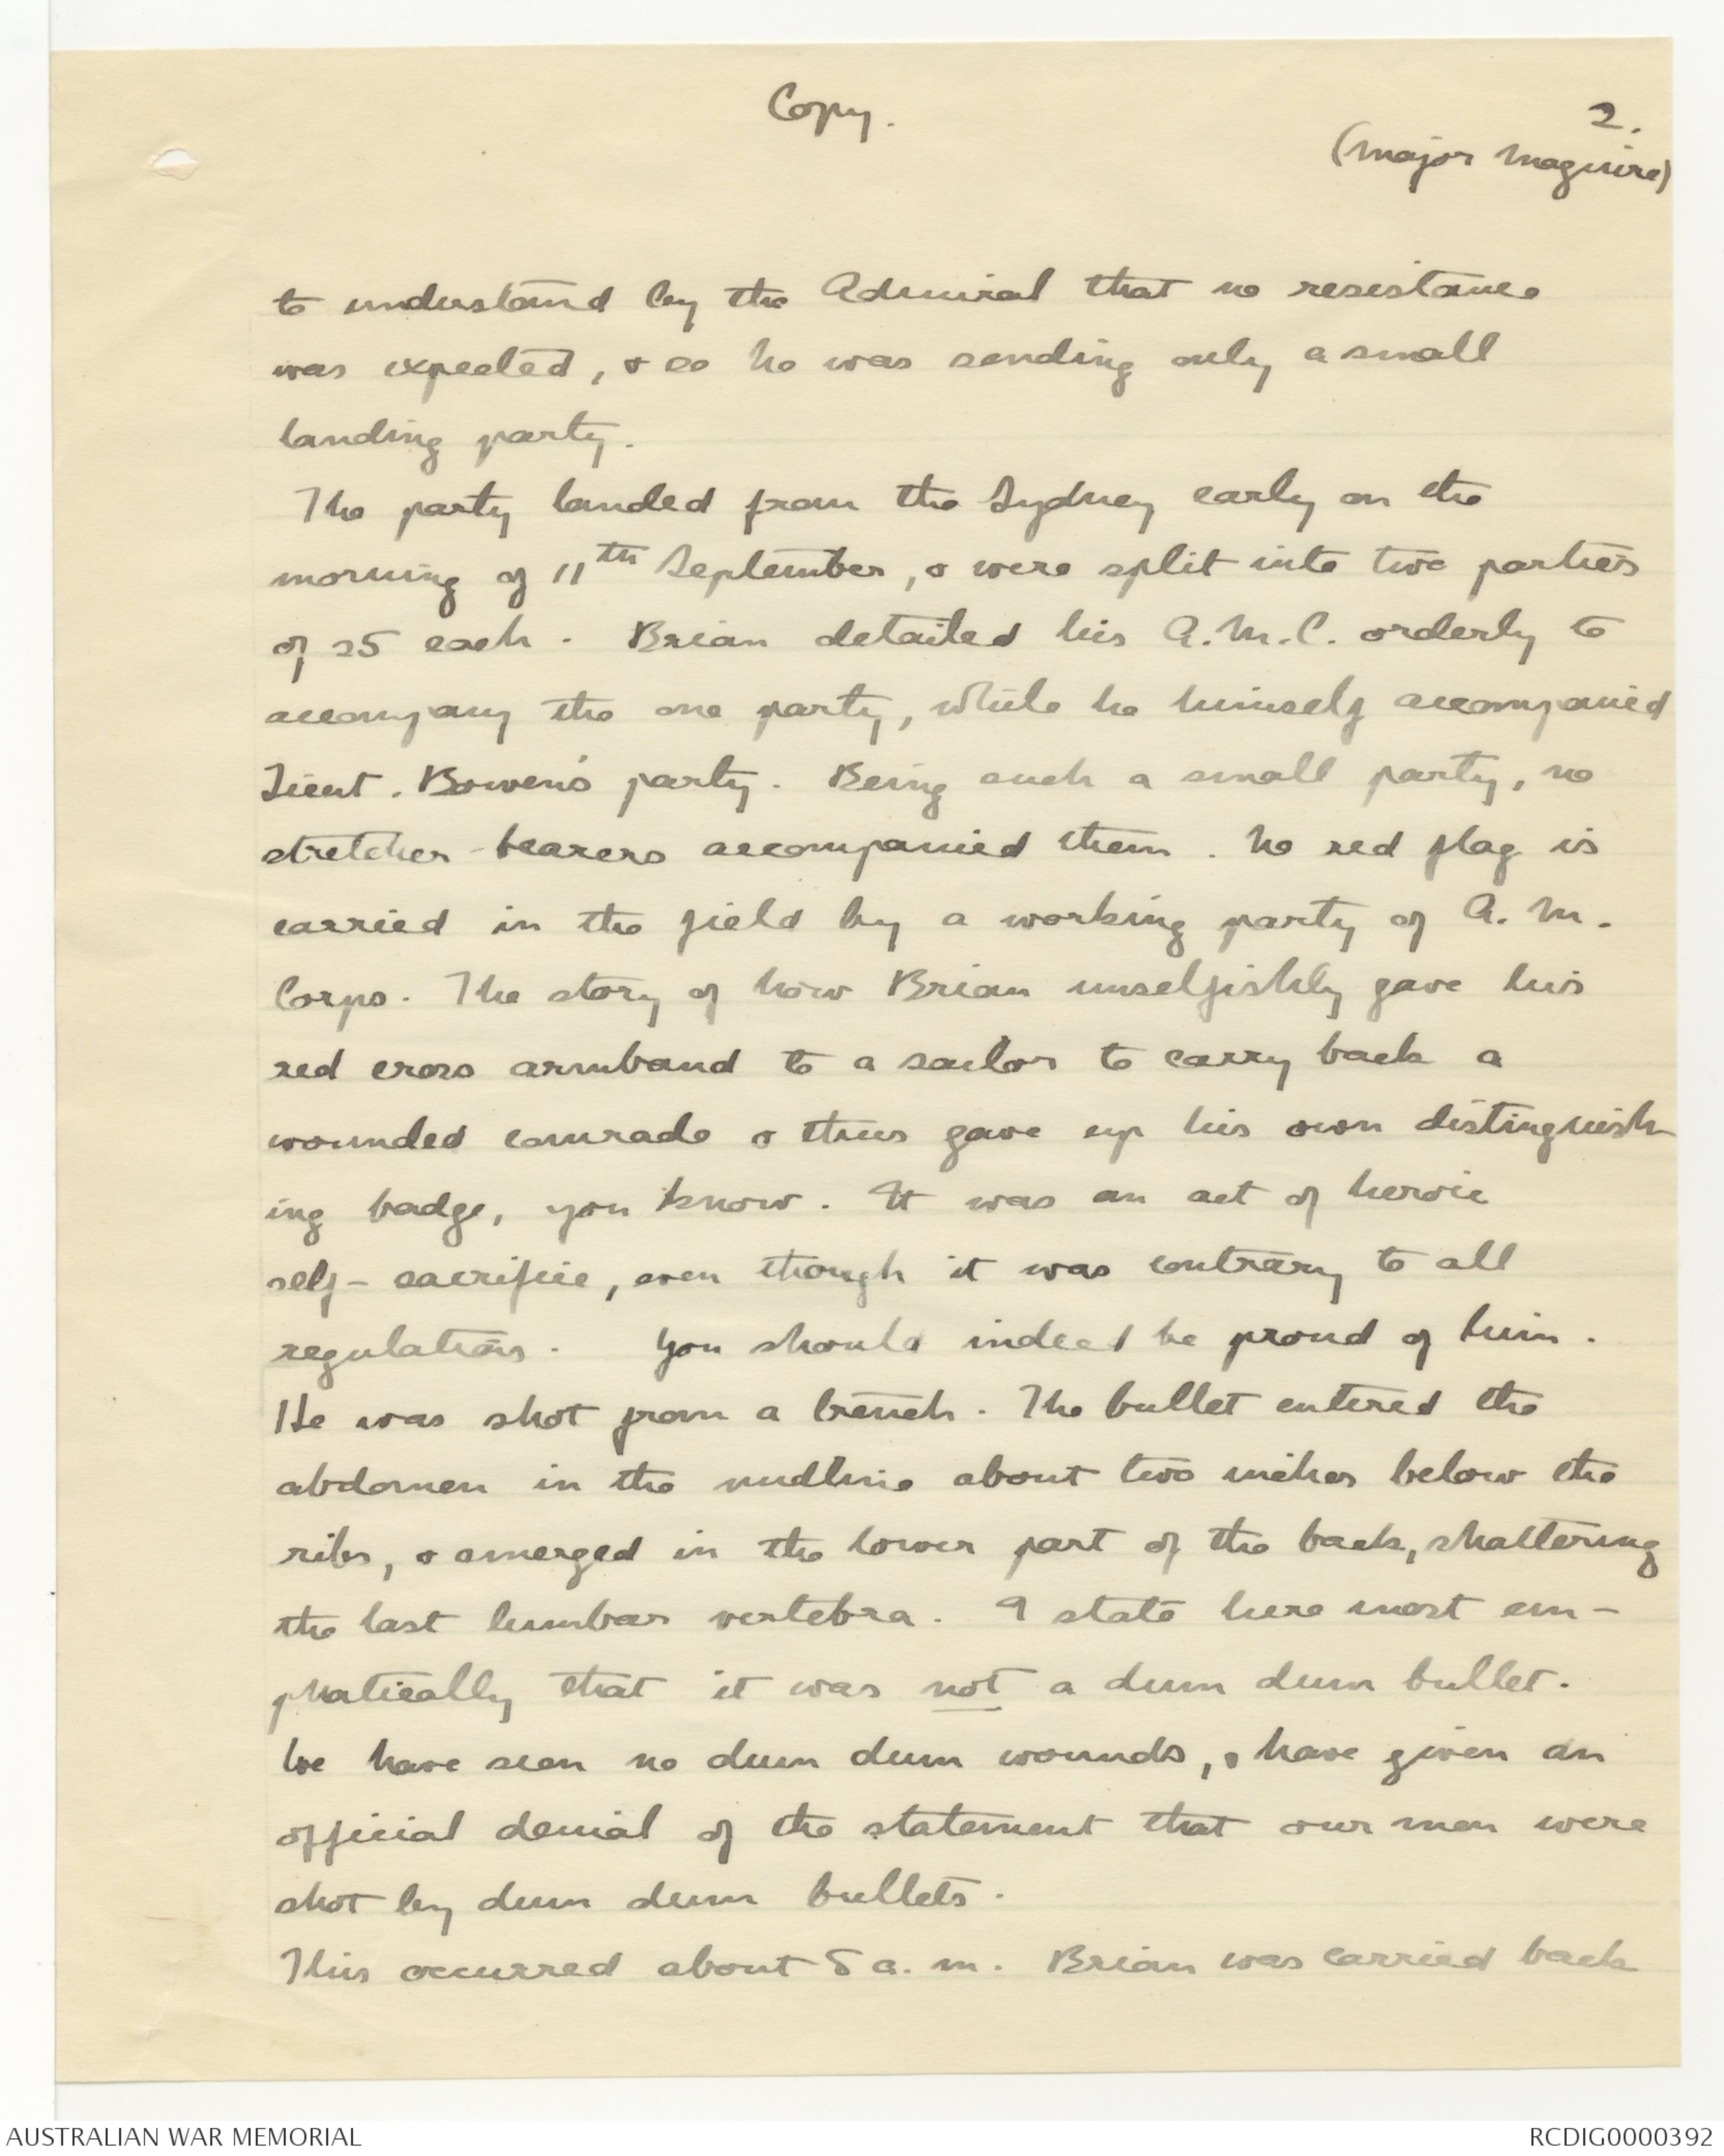 Copy.
2.
(Major Maguire)
to understand by the Admiral that no resistance
was expected, & so he was sending only a small
landing party.
The party landed from the Sydney early on the
morning of 11th September, & were split into two parties
of 25 each. Brian detailed his A.M.C. orderly to
accompany the one party, while he himself accompanied
Lieut. Bowen's party. Being such a small party, no
stretcher-bearers accompanied them. No red flag is
carried in the field by a working party of A. M.
Corps. The story of how Brian unselfishly gave his
red cross armband to a sailor to carry back a
wounded comrade & thus gave up his own distinguish-
ing badge, you know. It was an act of heroic
self-sacrifice, even though it was contrary to all
regulations. You should indeed be proud of him.
He was shot from a trench. The bullet entered the
abdomen in the midline about two inches below the
ribs, & emerged in the lower part of the back, shattering
the last lumbar vertebra. I state here most em-
phatically that it was not a dum dum bullet.
We have seen no dum dum wounds, & have given an
official denial of the statement that our men were
shot by dum dum bullets.
This occurred about 8 a.m. Brian was carried back
AUSTRALIAN WAR MEMORIAL
RCDIG0000392